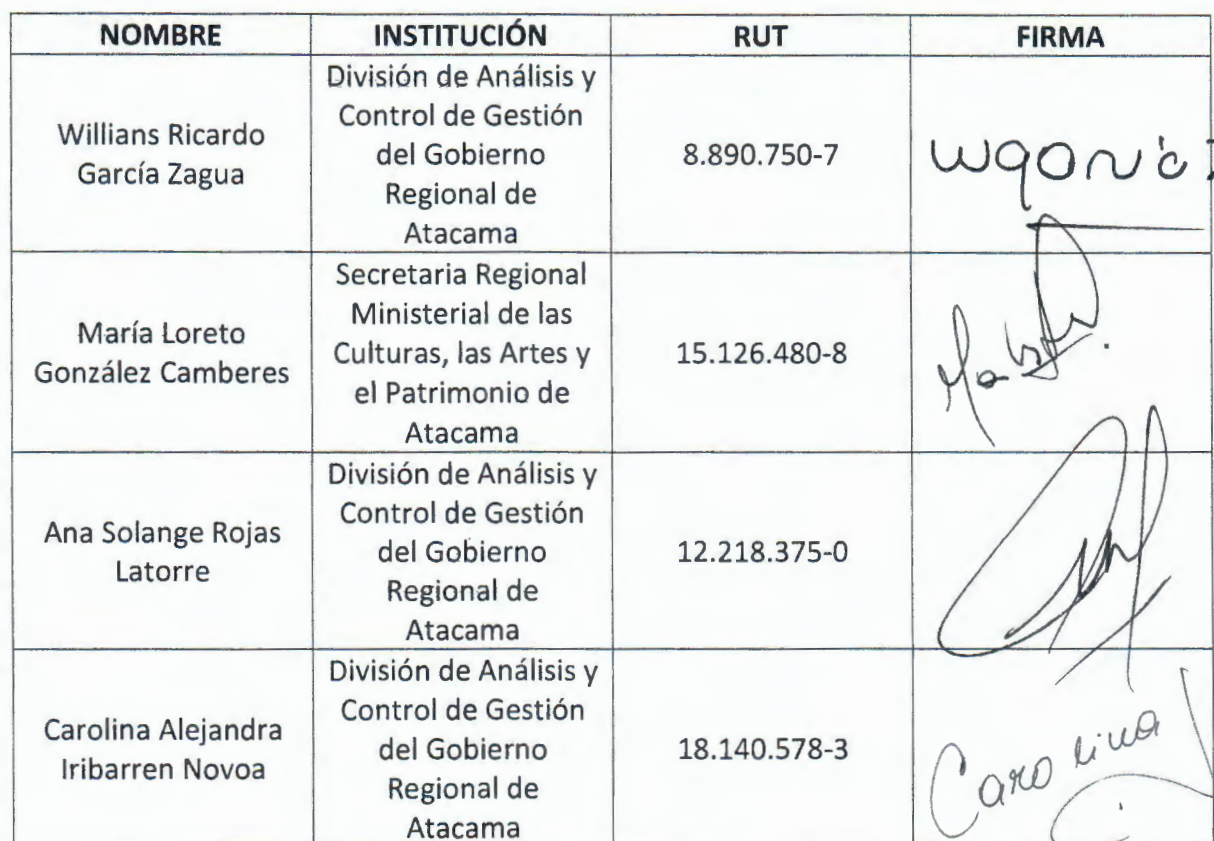 NOMBRE INSTITUCIÓN RUT FIRMA
Willians Ricardo
García Zagua
División de Análisis y
Control de Gestión
del Gobierno
Regional de
Atacama
8.890.750-7
María Loreto
González Camberes
Secretaria Regional
Ministerial de las
Culturas, las Artes y
el Patrimonio de
Atacama
15.126.480-8
Ana Solange Rojas
Latorre
División de Análisis y
Control de Gestión
del Gobierno
Regional de
Atacama
12.218.375-0
Carolina Alejandra
Iribarren Novoa
División de Análisis y
Control de Gestión
del Gobierno
Regional de
Atacama
18.140.578-3
Carolina